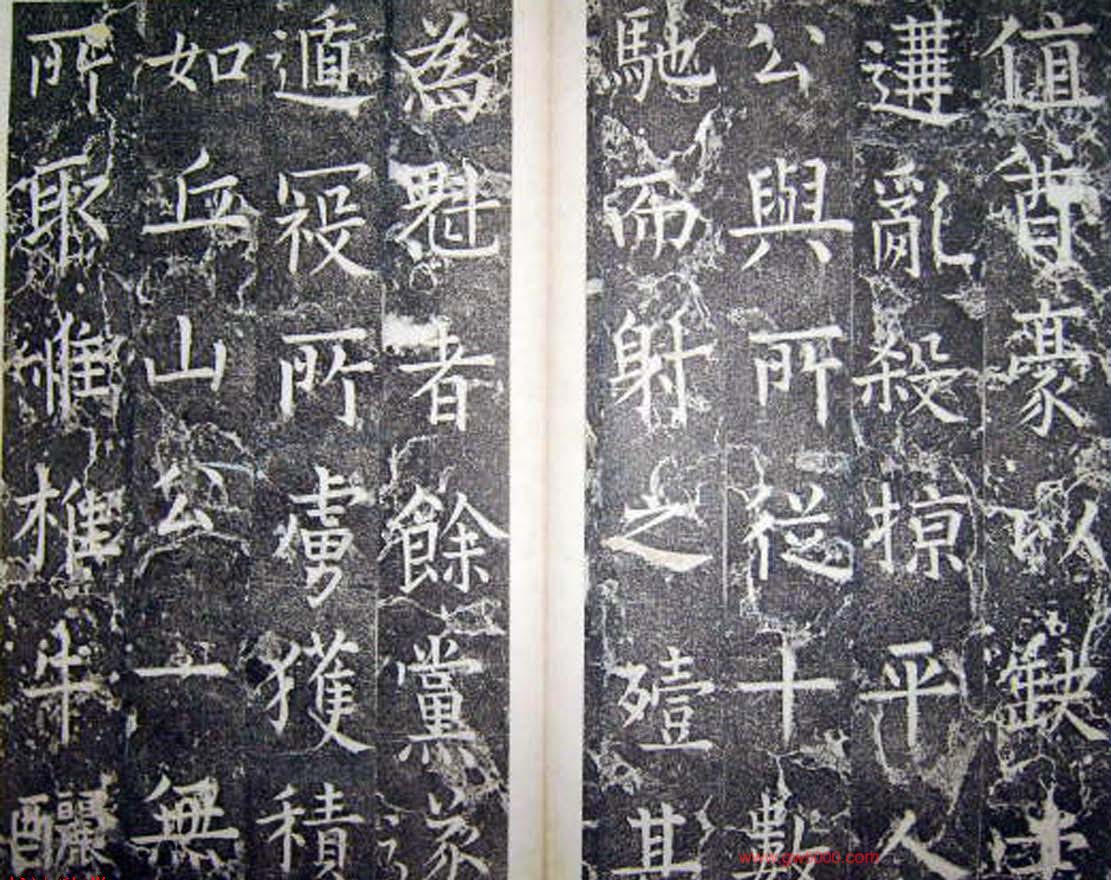 值豪以缺
遘亂殺掠平人
公與所從十數
馳而射之殪其
為魁者餘黨遂
遁所虜獲積
如丘山公一無
所取惟椎牛釃